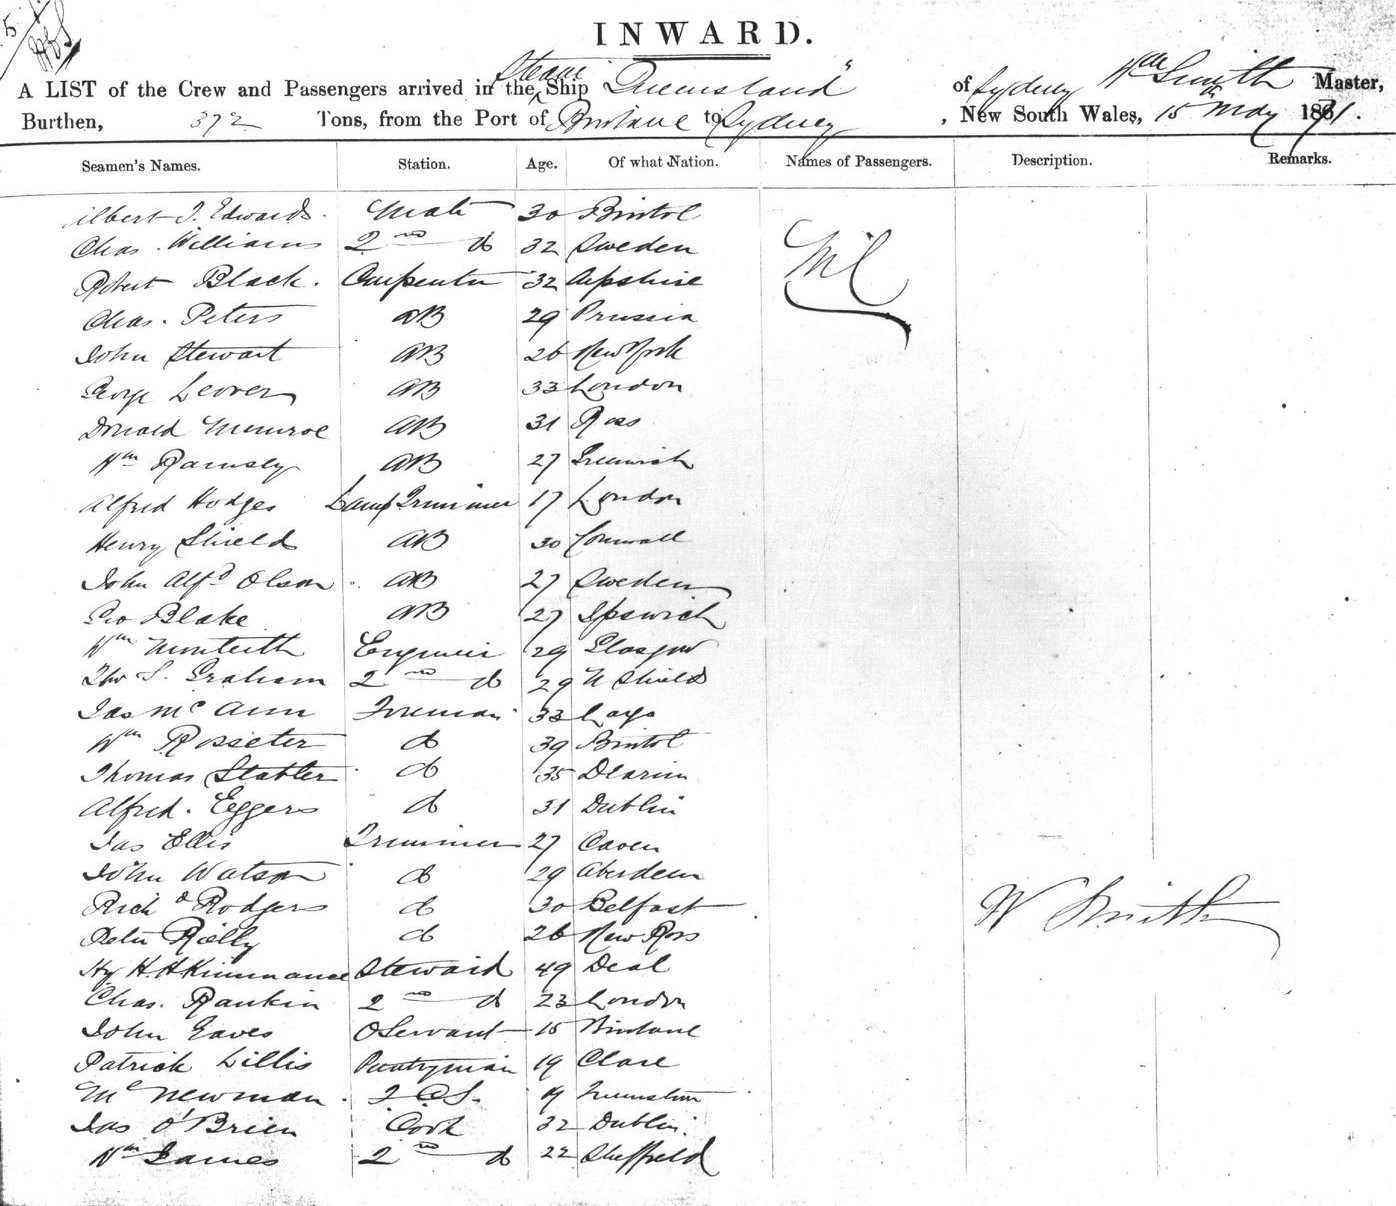 INWARD.
A LIST of the Crew and Passengers arrived in the Steam Ship "Queensland" of Sydney Wm Smith Master,
Burthen, 372 Tons, from the Port of Brisbane to Sydney, New South Wales, 15th May 1871.
Seamen's Names. Station. Age. Of what Nation. Names of Passengers. Description. Remarks.
Albert J. Edwards. Mate 30 Bristol
Chas. Williams 2nd do 32 Sweden Nil
Robert Black. Carpenter 32 Ayrshire
Chas. Peters AB 29 Prussia
John Stewart AB 26 New York
George Leover AB 33 London
Donald Munroe AB 31 Ross
Wm Ramsey AB 27 Greenwich
Alfred Hodges Lamp Trimmer 17 London
Henry Shield AB 30 Cornwall
John Alfd Olson AB 27 Sweden
Geo Blake AB 27 Ipswich
Wm Monteith Engineer 29 Glasgow
Thos S. Graham 2nd do 29 N Shields
Jas McCann Foreman 33
Wm Rosseter do 39 Bristol
Thomas Stabler do 35
Alfred. Eggers do 31 Dublin
Jas Ellis Trimmer 27 Caven
John Watson do 29 Aberdeen
Richd Rodgers do 30 Belfast W Smith
Peter Rielly do 26 New Ross
Hy H. Steward 49 Deal
Chas. Rankin 2nd do 23 London
John Eaves O Servant 15 Brisbane
Patrick Lillis Pantryman 19 Clare
Mc Newman. 19
Jas O'Brien Cook 32 Dublin.
Wm James 2nd do 22 Sheffield